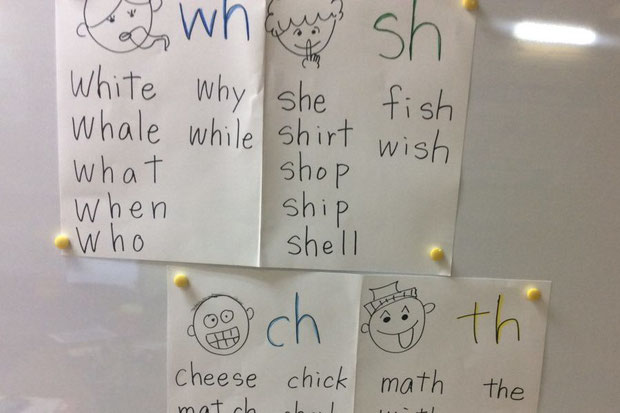 wh
white why
whale while
what
when
who
sh
she fish
shirt wish
shop
ship
shell
ch
cheese chick
match
th
math the